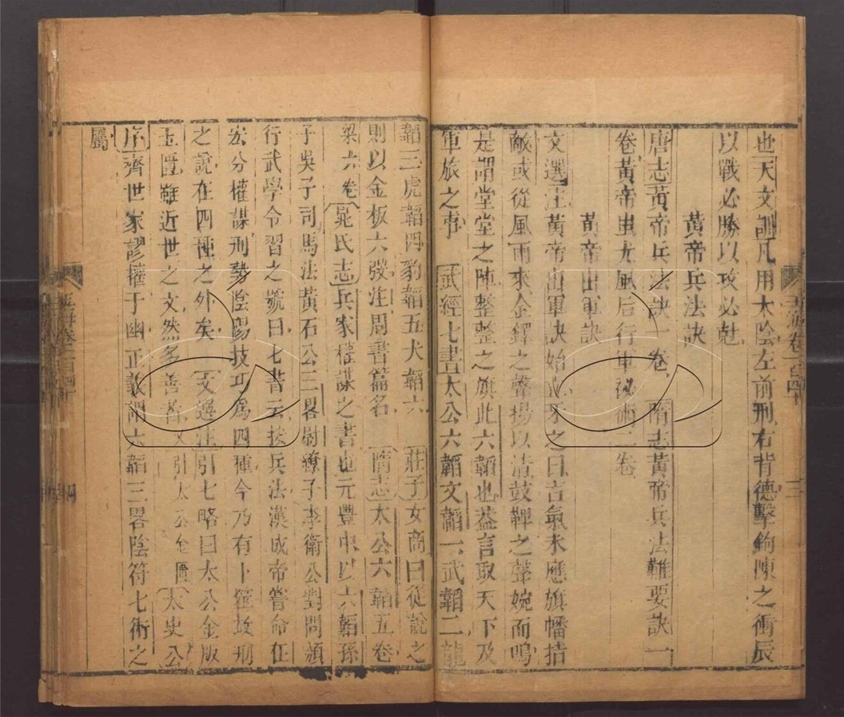 也天文訓凡用太陰左前刑右背德擊鉤陳之衝辰
以戰必勝以攻必尅
黃帝兵法訣
唐志黃帝兵法訣一卷隋志黃帝兵法雜要訣一
卷黃帝蚩尤風后行軍祕術二卷
黃帝出軍訣
文選注黃帝出軍訣始立牙之日吉氣來應旗幡指
敵或從風而來金鐸之聲揚以清鼓鞞之聲婉而鳴
是謂堂堂之陣整整之旗此六韜也蓋言取天下及
軍旅之事 武經七書太公六韜文韜一武韜二龍
韜三虎韜四豹韜五犬韜六 莊子女商曰從說之
則以金板六弢注周書篇名 隋志太公六韜五卷
梁六卷 晁氏志兵家權謀之書也元豐中以六韜孫
子吳子司馬法黃石公三畧尉繚子李衛公對問頒
行武學令習之號曰七書云按兵法漢成帝嘗命任
宏分權謀刑勢陰陽技巧爲四種今乃有卜筮故刑
之說在四種之外矣 文選注引七略曰太公金版
玉匱雖近世之文然多善者又引太公金匱 太史公
序齊世家謬權于幽正義謂六韜三畧陰符七術之
屬
玉海卷一百四十
三
四